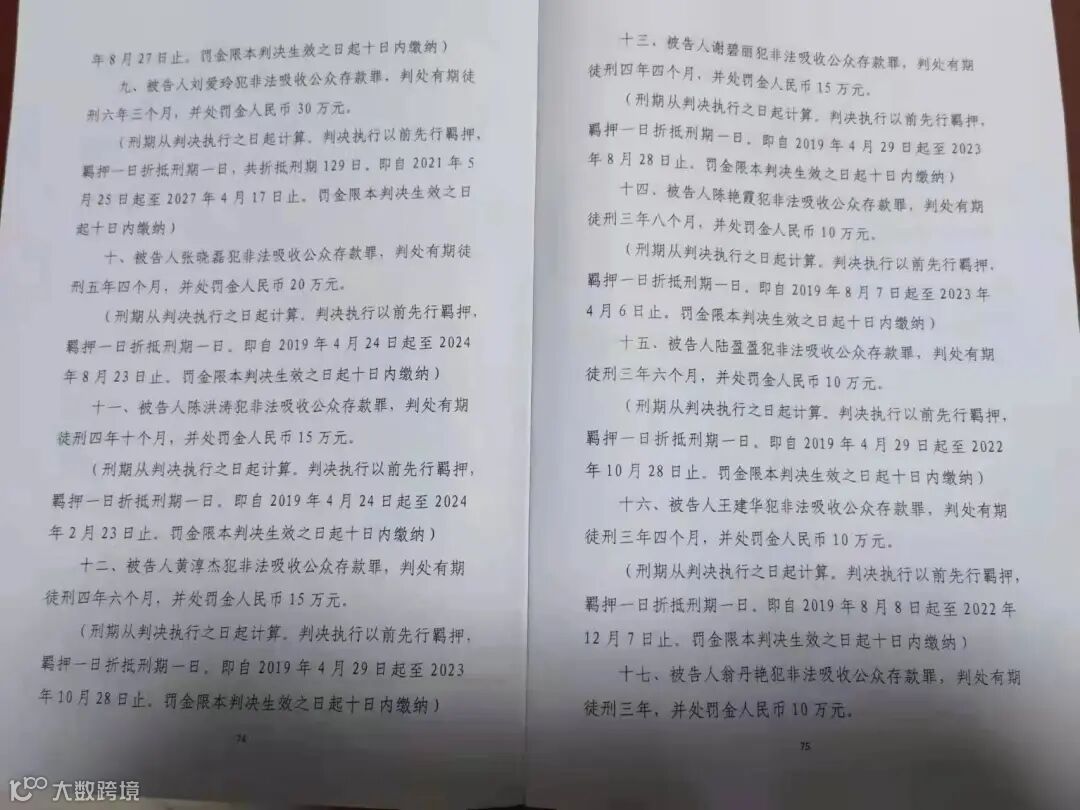 年8月27日止。罚金限本判决生效之日起十日内缴纳)
九、被告人刘爱玲犯非法吸收公众存款罪,判处有期徒
刑六年三个月,并处罚金人民币30万元。
(刑期从判决执行之日起计算。判决执行以前先行羁押,
羁押一日折抵刑期一日,共折抵刑期129日。即自2021年5
月25日起至2027年4月17日止。罚金限本判决生效之日
起十日内缴纳)
十、被告人张晓磊犯非法吸收公众存款罪,判处有期徒
刑五年四个月,并处罚金人民币20万元。
(刑期从判决执行之日起计算。判决执行以前先行羁押,
羁押一日折抵刑期一日。即自2019年4月24日起至2024
年8月23日止。罚金限本判决生效之日起十日内缴纳)
十一、被告人陈洪涛犯非法吸收公众存款罪,判处有期
徒刑四年十个月,并处罚金人民币15万元。
(刑期从判决执行之日起计算。判决执行以前先行羁押,
羁押一日折抵刑期一日。即自2019年4月24日起至2024
年2月23日止。罚金限本判决生效之日起十日内缴纳)
十二、被告人黄淳杰犯非法吸收公众存款罪,判处有期
徒刑四年六个月,并处罚金人民币15万元。
(刑期从判决执行之日起计算。判决执行以前先行羁押,
羁押一日折抵刑期一日。即自2019年4月29日起至2023
年10月28日止。罚金限本判决生效之日起十日内缴纳)
74
十三、被告人谢碧丽犯非法吸收公众存款罪,判处有期
徒刑四年四个月,并处罚金人民币15万元。
(刑期从判决执行之日起计算。判决执行以前先行羁押,
羁押一日折抵刑期一日。即自2019年4月29日起至2023
年8月28日止。罚金限本判决生效之日起十日内缴纳)
十四、被告人陈艳霞犯非法吸收公众存款罪,判处有期
徒刑三年八个月,并处罚金人民币10万元。
(刑期从判决执行之日起计算。判决执行以前先行羁押,
羁押一日折抵刑期一日。即自2019年8月7日起至2023年
4月6日止。罚金限本判决生效之日起十日内缴纳)
十五、被告人陆盈盈犯非法吸收公众存款罪,判处有期
徒刑三年六个月,并处罚金人民币10万元。
(刑期从判决执行之日起计算。判决执行以前先行羁押,
羁押一日折抵刑期一日。即自2019年4月29日起至2022
年10月28日止。罚金限本判决生效之日起十日内缴纳)
十六、被告人王建华犯非法吸收公众存款罪,判处有期
徒刑三年四个月,并处罚金人民币10万元。
(刑期从判决执行之日起计算。判决执行以前先行羁押,
羁押一日折抵刑期一日。即自2019年8月8日起至2022年
12月7日止。罚金限本判决生效之日起十日内缴纳)
十七、被告人翁丹艳犯非法吸收公众存款罪,判处有期
徒刑三年,并处罚金人民币10万元。
75
大数跨境